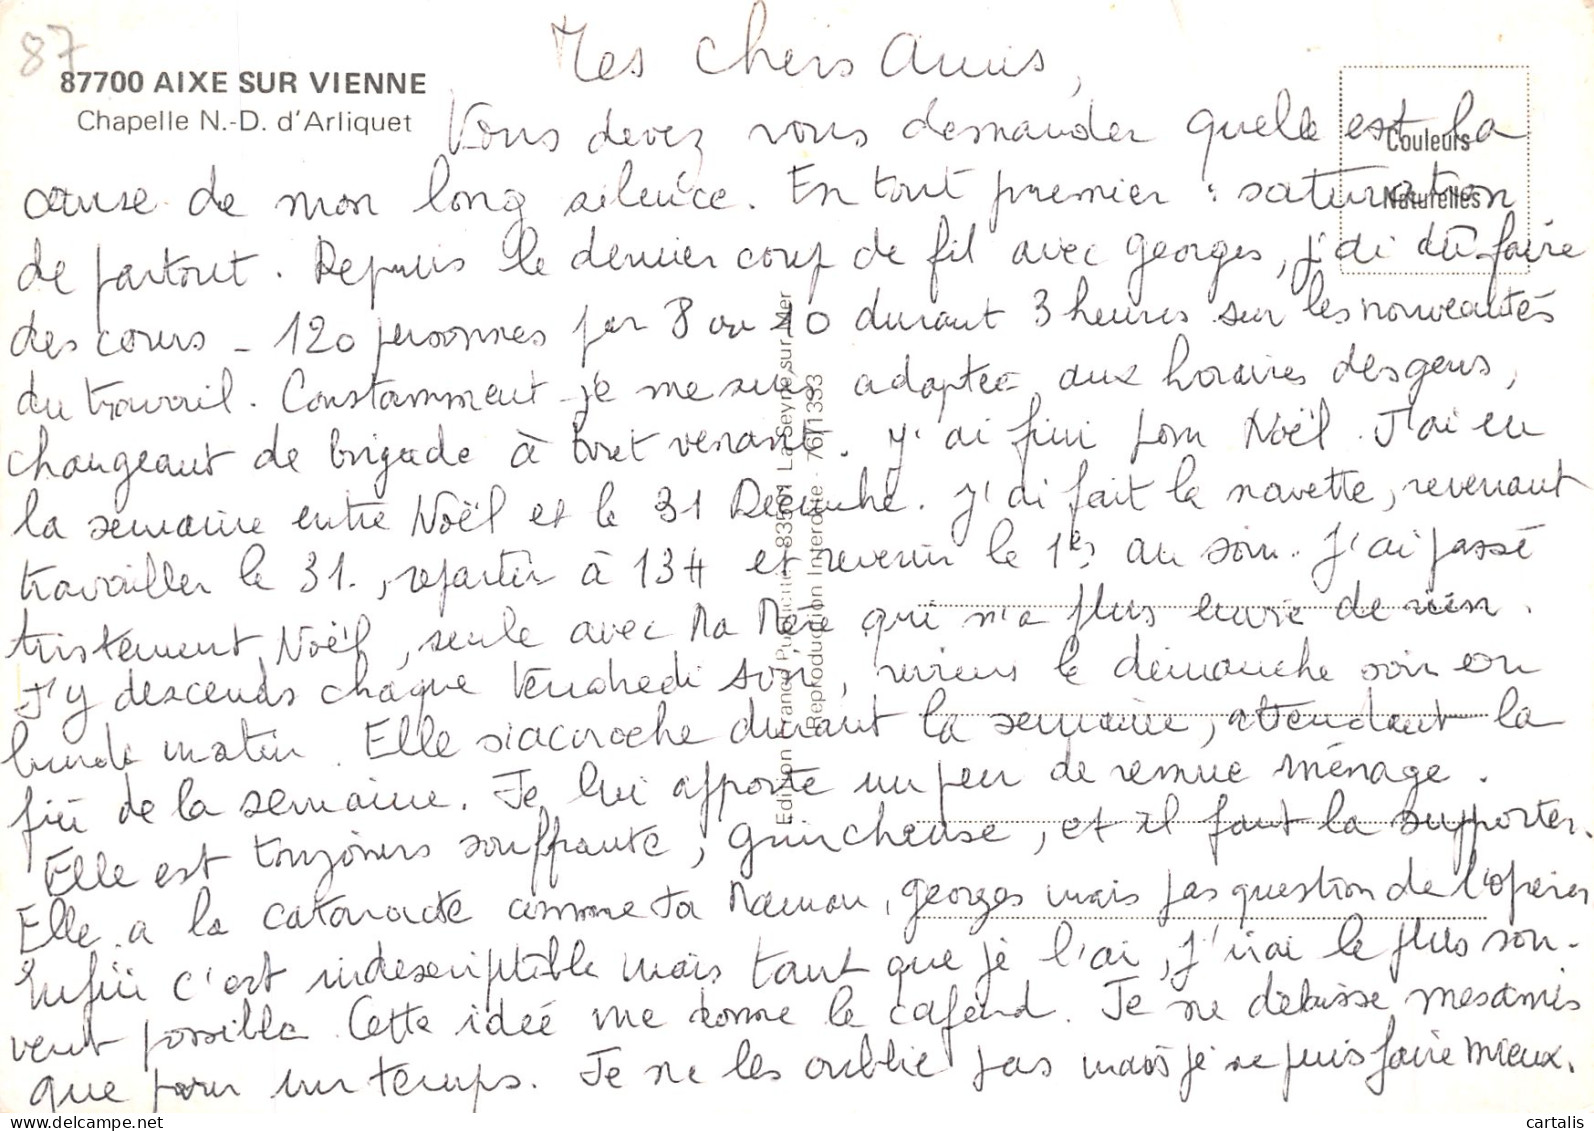 87
87700 AIXE SUR VIENNE
Chapelle N.-D. d'Arliquet
Couleurs
Naturelles
Mes chers Amis,
Vous devez vous demander quelle est la
cause de mon long silence. En tout premier : saturation
de partout. Depuis le dernier coup de fil avec Georges, j'ai dû faire
des cours - 120 personnes par 8 ou 10 durant 3 heures sur les nouveautés
du travail. Constamment je me suis adaptée aux horaires des gens,
changeant de brigade à tout venant. J'ai fini pour Noël. J'ai eu
la semaine entre Noël et le 31 Décembre. J'ai fait la navette, revenant
travailler le 31, repartir à 13H et revenir le 1er au soir. J'ai passé
tristement Noël, seule avec Ma Mère qui n'a plus envie de rien.
J'y descends chaque Vendredi soir, reviens le dimanche soir ou
lundi matin. Elle s'accroche durant la semaine, attendant la
fin de la semaine. Je lui apporte un peu de remue ménage.
Elle est toujours souffrante, grincheuse, et il faut la supporter.
Elle a la cataracte comme ta Maman, Georges mais pas question de l'opérer
Enfin c'est indescriptible mais tant que je l'ai, j'irai le plus sou-
vent possible. Cette idée me donne le cafard. Je ne délaisse mes amis
que pour un temps. Je ne les oublie pas mais je ne puis faire mieux.
Edition France 83501 La Seyne sur Mer
Reproduction Interdite - 76/1393
cartalis.com